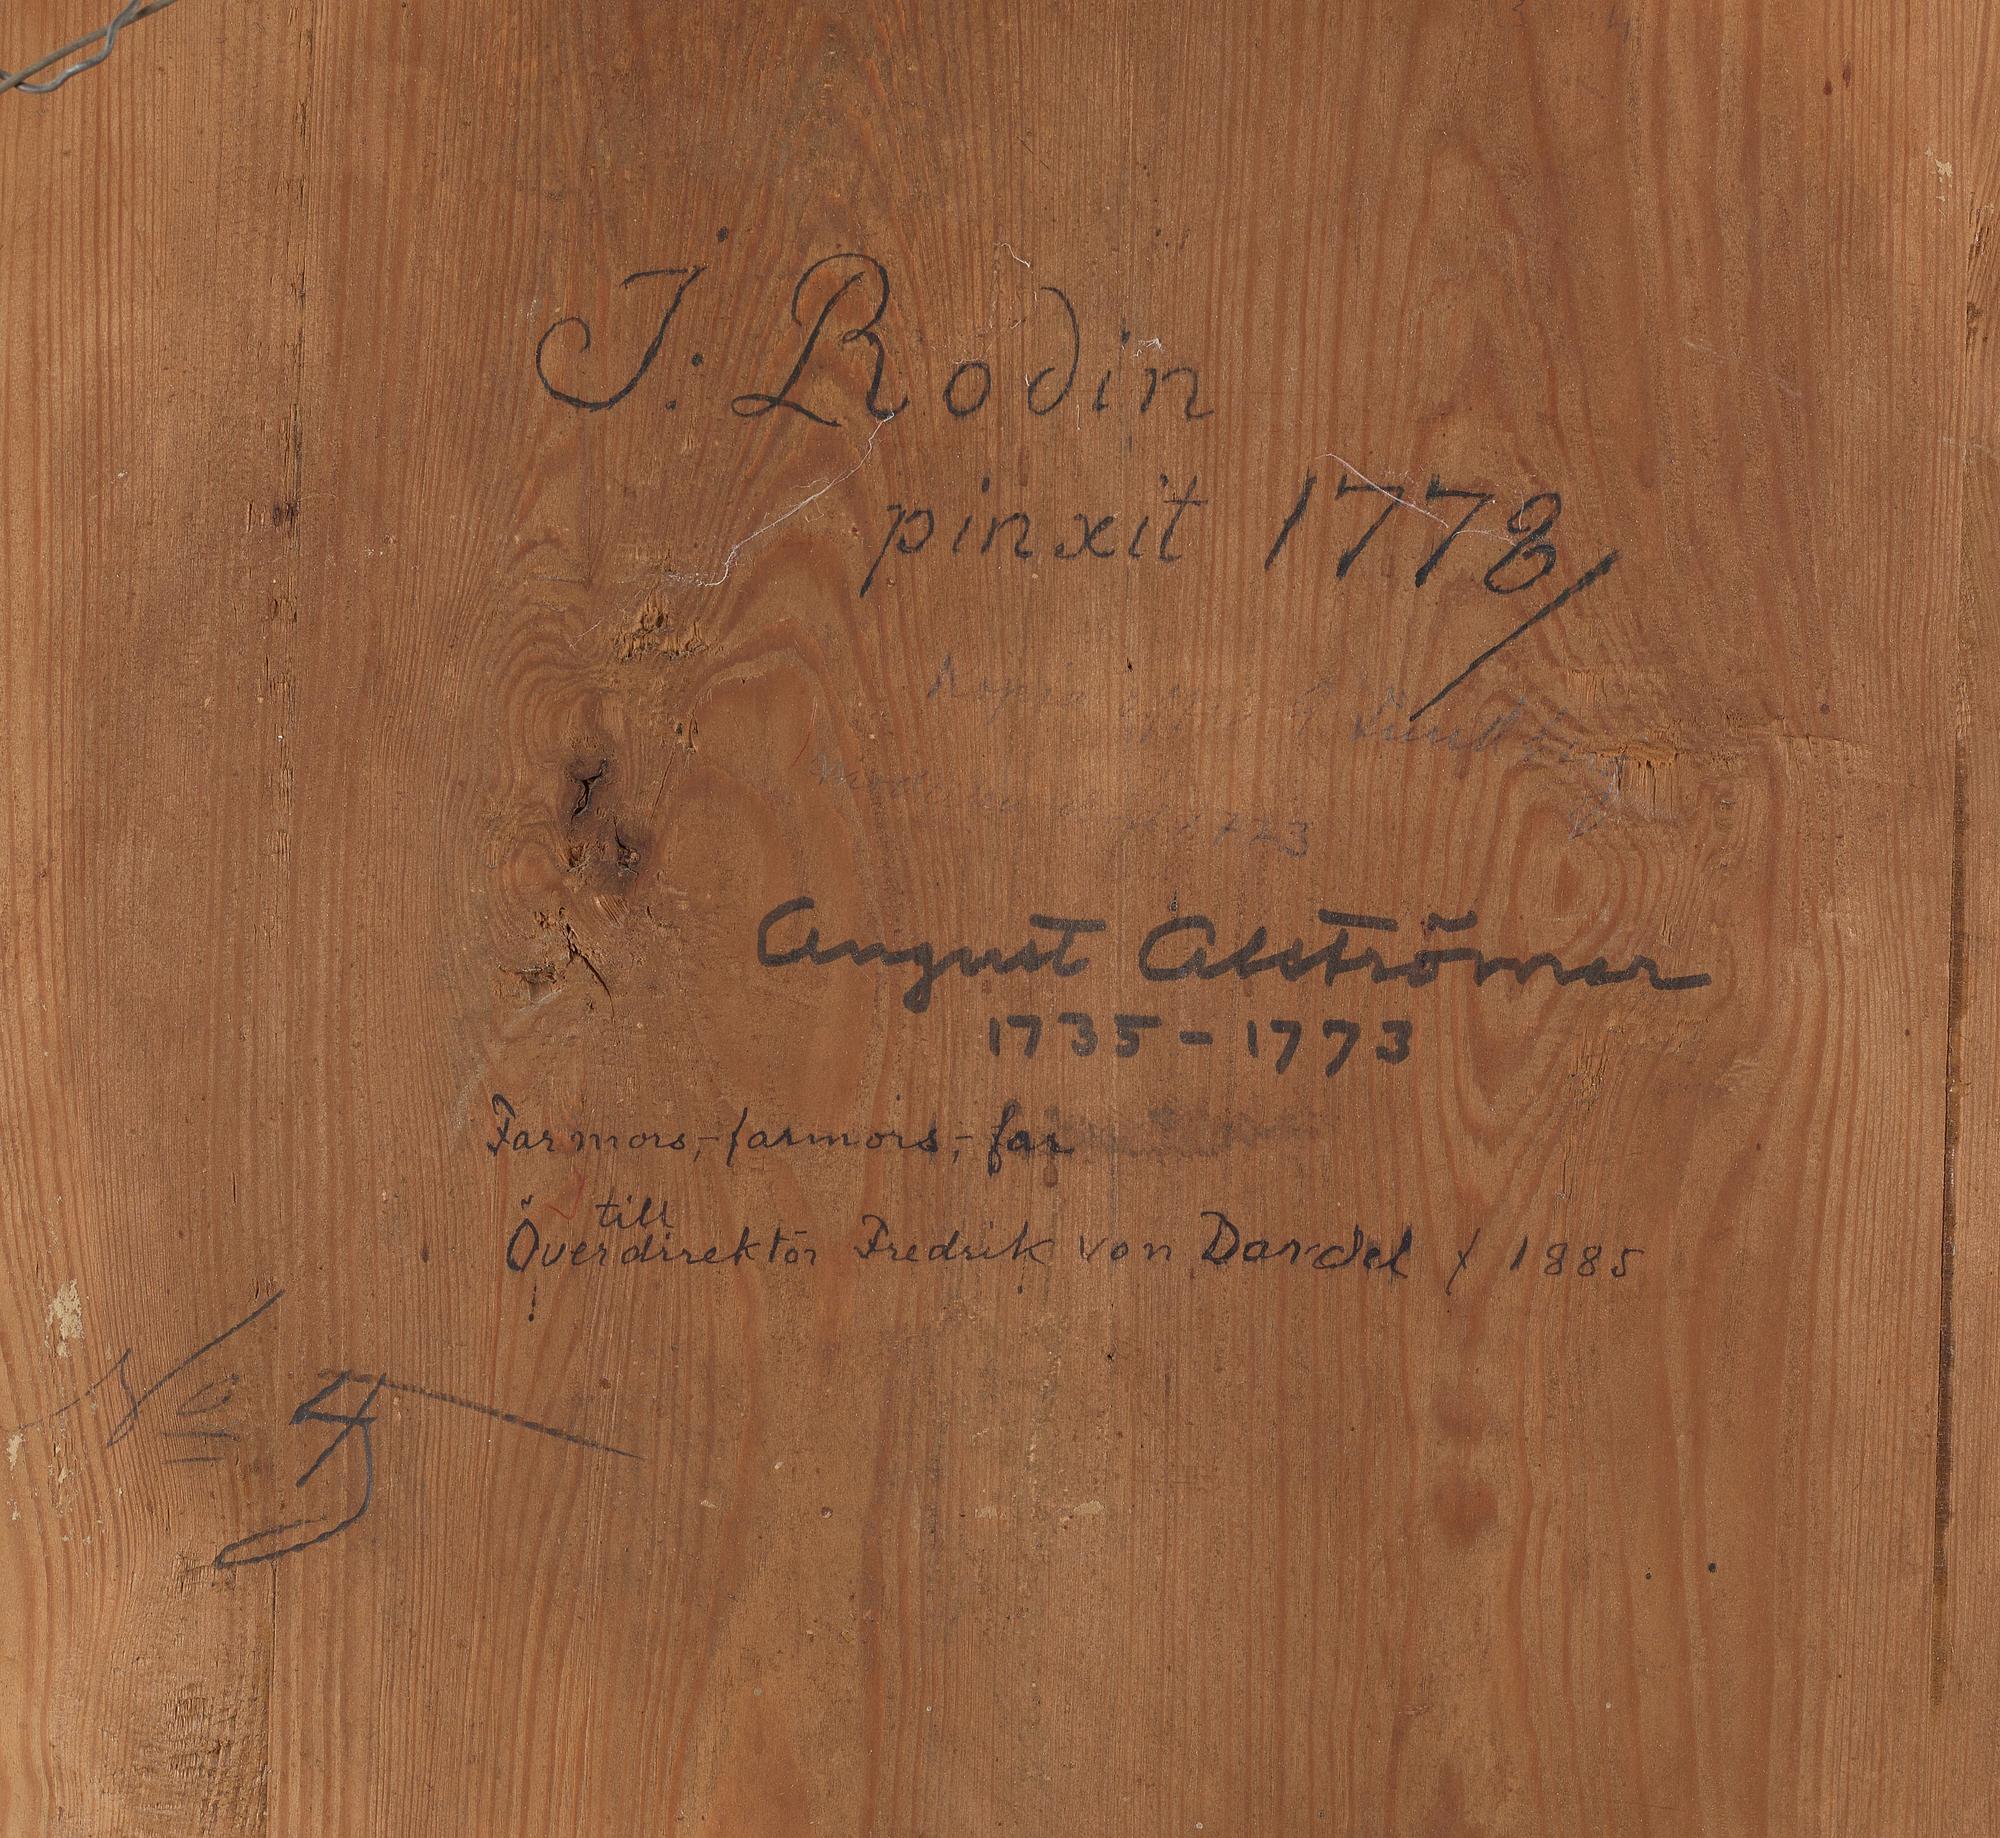 J: Rodin
pinxit 1778/
Kopia
1773
August Alströmer
1735-1773
Farmors,-farmors,-far
till
Överdirektör Fredrik von Dardel / 1885
No 4